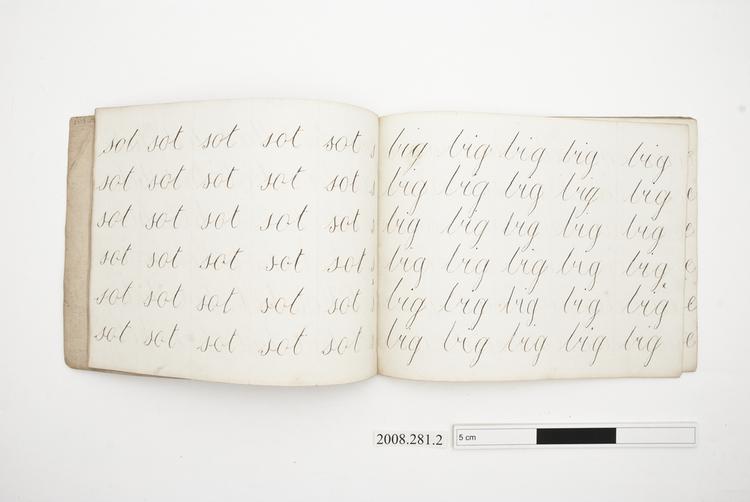 sot sot sot sot sot
sot sot sot sot sot
sot sot sot sot sot
sot sot sot sot sot
sot sot sot sot sot
sot sot sot sot sot
big big big big big
big big big big big
big big big big big
big big big big big
big big big big big
big big big big big
2008.281.2
5 cm